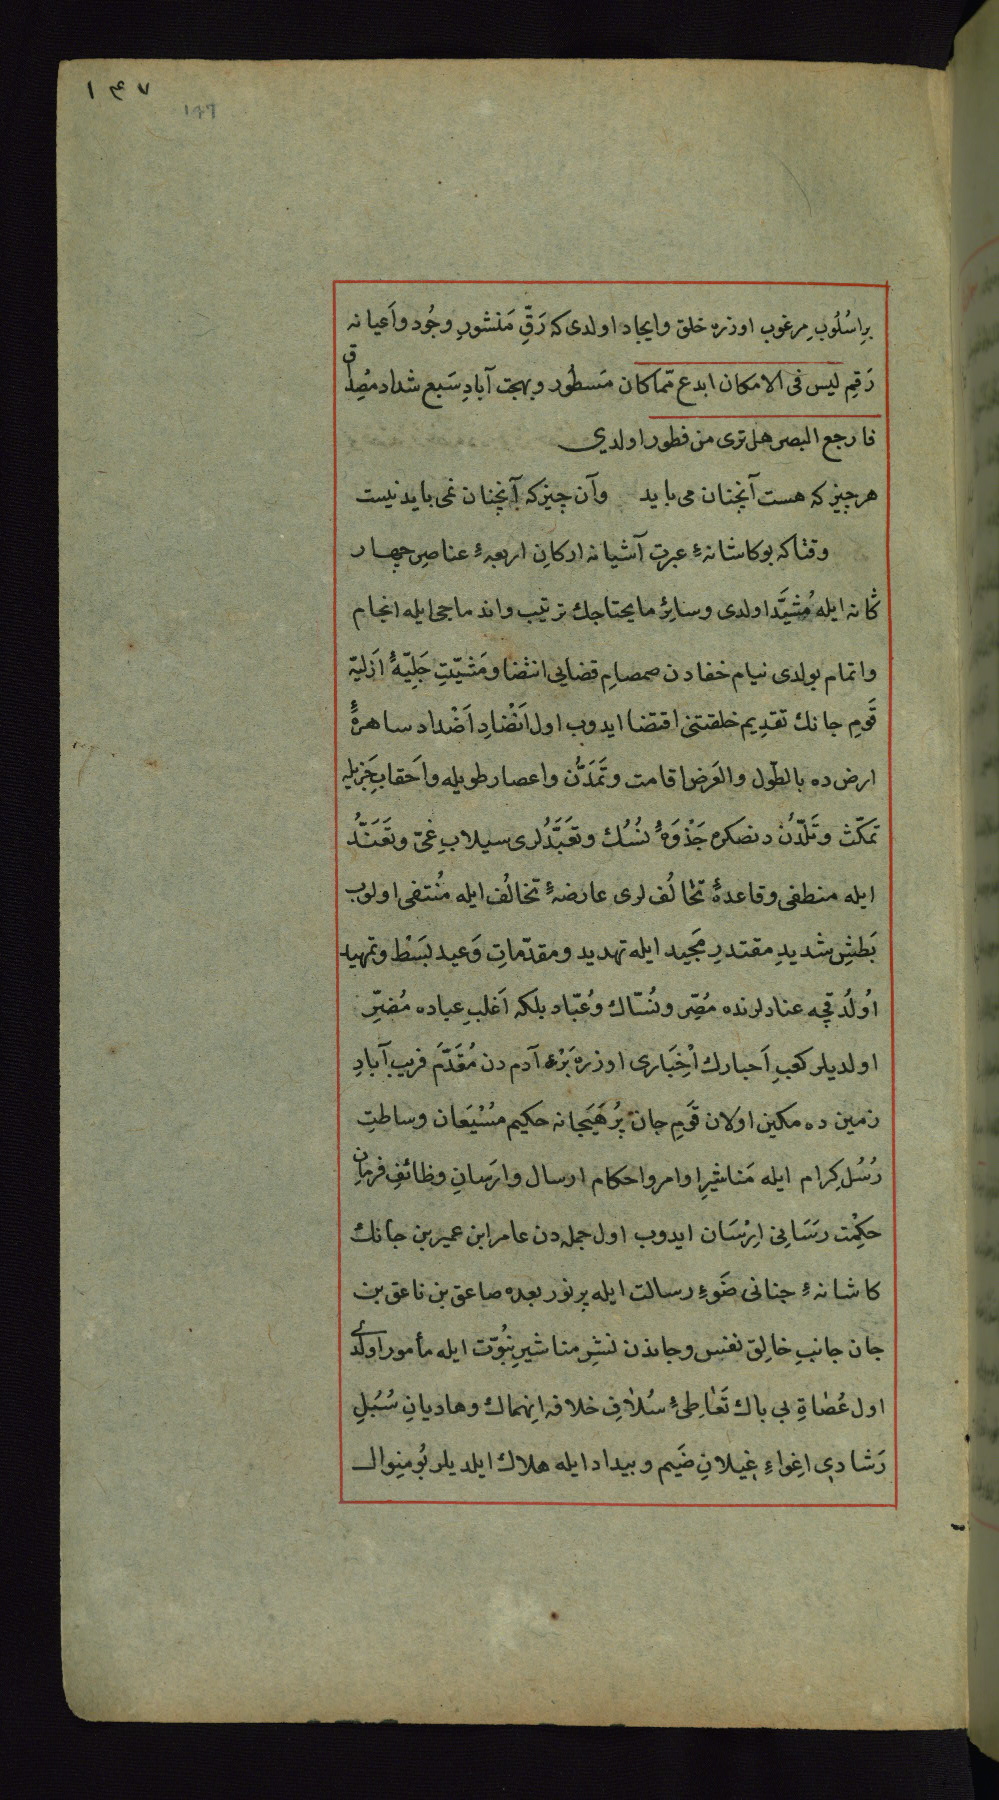 ۱۴۷
147
بر اسُلُوبِ مرغوب اوزره خلق وايجاد اولدى كه رَقِّ مَنشورِ وجُود واَعيانه
رَقمِ ليس فى الامكان ابدع ممّا كان مَسطُور وبهجت آبادِ سَبع شداد مصِداق
فارجع البصر هل ترى من فطور اولدي
هر چيز كه هست آنچنان مى بايد وآن چيز كه آنچنان نمى بايد نيست
وقتاكه بو كاشانهٔ عبرت آشيانه اركانِ اربعهٔ عناصرِ چهار
كانه ايله مُشَيَّد اولدى وسائِر مايحتاجك ترتيب واندماجى ايله انجام
واتمام بولدى نيام خفادن صمصامِ قضايى انتضا ومَشيّتِ جَلِيّهٔ اَزليّه
قَومِ جانك تقديم خلقتنى اقتضا ايدوب اول اَنْضادِ اَضْداد ساهرهٔ
ارض ده بالطّول والعَرض اقامت وتَمَدُّن واعصار طويله واَحقابِ جَزيله
تمكّث وتَلَدُّن دنصكره جَذْوَهٔ نُسُك وتَعَبُّدلرى سيلابِ غىّ وتَعَنُّد
ايله منطفى وقاعدهٔ تحَالُف لرى عارضهٔ تخالُف ايله مُنتفى اولوب
بَطشِ شديدِ مقتدرِ مَجيد ايله تهديد ومقدّماتِ وَعيد بَسْط وتمهيد
اوُلُدقچه عنادلرنده مُصِّر ونُسّاك وعُبّاد بلكه اَغلبِ عباده مُضِرّ
اولديلر كعبِ اَحبارك اَخْبَارى اوزره بَرْءِ آدم دن مُقَدَّم فريب آبادِ
زمين ده مكين اولان قَومِ جان پُر هَيَجانه حكيم مسُتَعان وساطتِ
رُسُلِ كِرام ايله مَناشيرِ اوامر واحكام ارسال وارَسانِ وظائفِ فرمانِ
حكِمْت رَسَانِى ارِسَان ايدوب اول جمله دن عامر ابن عمير بن جانك
كاشانهٔ جنانى ضَوءِ رسالت ايله پر نور بعده صاعق بن ناعق بن
جان جانبِ خالِق نفس وجاندن نشرِ مناشيرِ نبُوّت ايله مأمور اولدے
اول عُصَاةِ بى باك تَعَاطئ سُلافِ خلافه اِنهماك وهاديانِ سُبُلِ
رَشادى اغواءِ غيلانِ ضَيم وبيداد ايله هلاك ايلديلر بُو منِوال